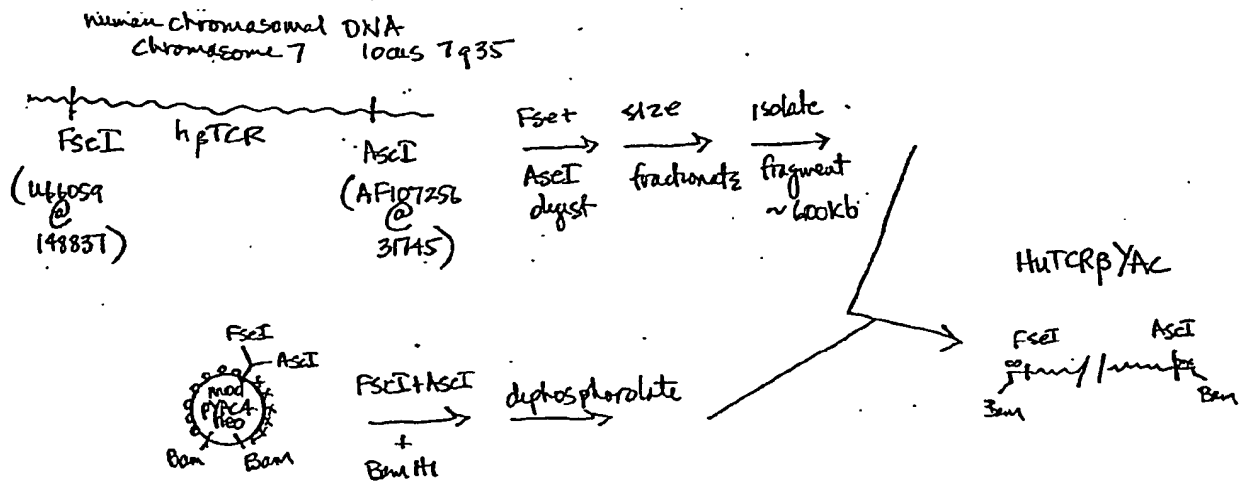 human chromasomal DNA
Chromosome 7 locus 7q35
FseI hβTCR AscI
(U66059 @ 148837)
(AF107256 @ 31745)
Fse+
AscI
digest
size
fractionate
isolate
fragment
~600kb
HuTCRβ YAC
FseI
AscI
Bam
Bam
FseI
AscI
mod
pYAC4-
neo
Bam Bam
FscI+AscI
+
Bam HI
dephosphorolate